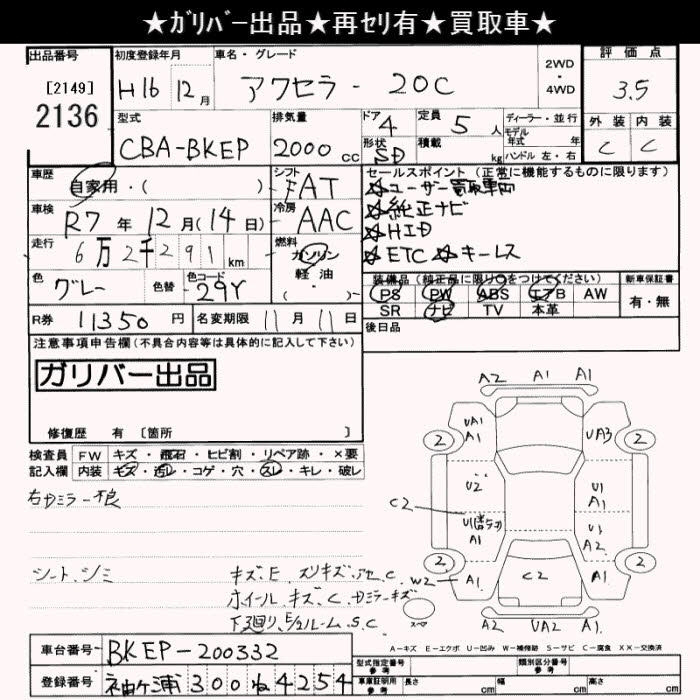 ★ガリバー出品★再セリ有★買取車★
出品番号
[2149]
2136
初度登録年月
H16 12月
車名・グレード
アクセラ - 20C
2WD
・
4WD
評価点
3.5
外装 内装
C C
型式
CBA-BKEP
排気量
2000cc
ドア
4
形状
SD
定員
5人
積載
kg
ディーラー・並行
モデル
年式 年
ハンドル 左・右
車歴
自家用・( )
シフト
FAT
車検
R7年12月(14日)
冷房
AAC
走行
6万2千291km
燃料
ガソリン
軽油・
( )
色
グレー
色替
色コード
29Y
R券
11350円
名変期限
11月11日
セールスポイント(正常に機能するものに限ります)
☆ユーザー買取車両
☆純正ナビ
☆HID
☆ETC ☆キーレス
装備品(純正品に限り○をつけてください)
PS PW ABS エアB AW
SR ナビ TV 本革
新車保証書
有・無
後日品
注意事項申告欄(不具合内容等は具体的に記入して下さい)
ガリバー出品
修復歴 有 〔箇所 〕
検査員
記入欄
FW キズ・飛石・ヒビ割・リペア跡・×要
内装 キズ・汚レ・コゲ・穴・スレ・キレ・破レ
右カミラー不良
シート、シミ
キズ、E、スリキズ、アセ、C
ホイール、キズ、C、カミラーキズ
下廻り、E/ルーム、S、C
A2 A1 A1
UA1
A1
UA3
2 2
U2
U1
A1
C2
A1
A2
2 2
W2
A1
C2
A1
スペア
A2 UA2 A1
A-キズ E-エクボ U-凹み W-補修跡 S-サビ C-腐食 XX-交換済
車台番号
BKEP-200332
登録番号
袖ヶ浦300ね4254
型式指定番号
参考
類別区分番号
車庫証明用
参考
長さ cm 幅 cm 高さ cm